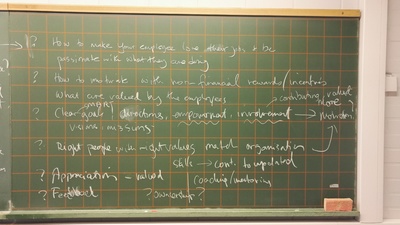 ? How to make your employee love their job & be
passionate with what they are doing
? How to motivate with non-financial rewards/incentives
what are valued by the employees
contributing, valued
more ?
? Clear goals, directions, empowerment, involvement → Motivation
vision - missions
? Right people with right values match organisation
skills → cont. to updated
coaching/mentoring
? Appreciation - valued
? Feedback ? ownership ?